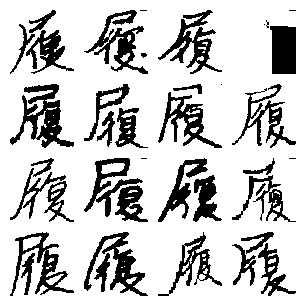 履履履
履履履履
履履履履
履履履履